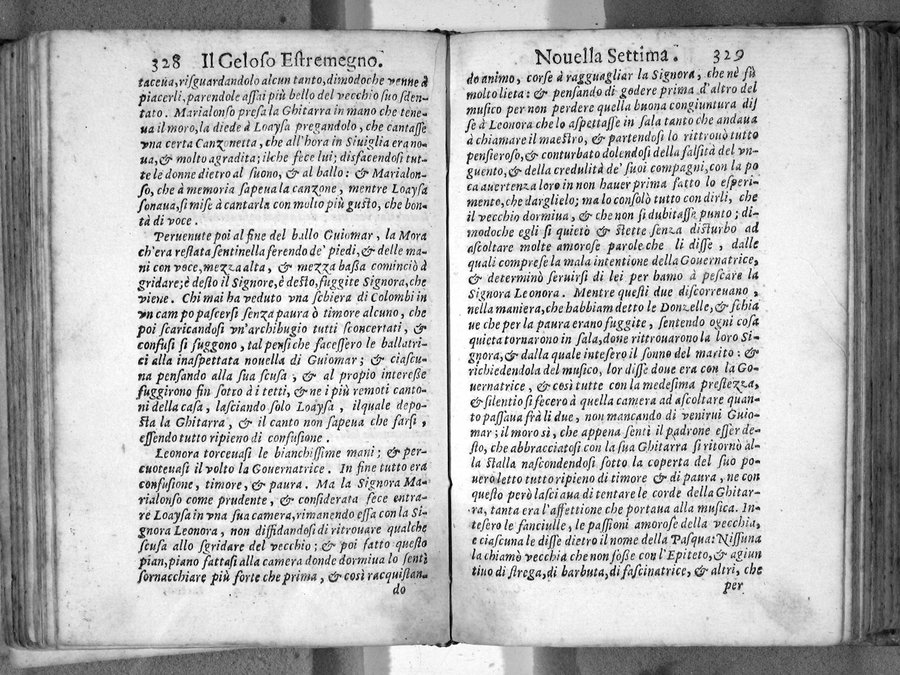 328 Il Geloso Estremegno.
taceua, risguardandolo alcun tanto, dimodoche venne à
piacerli, parendole assai più bello del vecchio suo sden-
tato. Marialonso presa la Ghitarra in mano che tene-
ua il moro, la diede à Loaysa pregandolo, che cantasse
vna certa Canzonetta, che all'hora in Siuiglia erano-
ua, & molto agradita; ilche fece lui; disfacendosi tut-
te le donne dietro al suono, & al ballo: & Marialon-
so, che à memoria sapeua la canzone, mentre Loaysa
sonaua, si mise à cantarla con molto più gusto, che bon-
tà di voce.
Peruenute poi al fine del ballo Guiomar, la Mora
ch'era restata sentinella ferendo de' piedi, & delle ma-
ni con voce, mezza alta, & mezza bassa cominciò à
gridare; è desto il Signore, è desto, fuggite Signora, che
viene. Chi mai ha veduto vna schiera di Colombi in
vn campo pascersi senza paura ò timore alcuno, che
poi scaricandosi vn'archibugio tutti sconcertati, &
confusi si fuggono, tal pensi che facessero le ballatri-
ci alla inaspettata nouella di Guiomar; & ciascu-
na pensando alla sua scusa, & al proprio interesse
fuggirono fin sotto à i tetti, & ne i più remoti canto-
ni della casa, lasciando solo Loaysa, ilquale depo-
sta la Ghitarra, & il canto non sapeua che farsi,
essendo tutto ripieno di confusione.
Leonora torceuasi le bianchissime mani; & per-
cuoteuasi il volto la Gouernatrice. In fine tutto era
confusione, timore, & paura. Ma la Signora Ma-
rialonso come prudente, & considerata fece entra-
re Loaysa in vna sua camera, rimanendo essa con la Si-
gnora Leonora, non diffidandosi di ritrouare qualche
scusa allo sgridare del vecchio; & poi fatto questo
pian, piano fattasi alla camera donde dormiua lo sentì
sornacchiare più forte che prima, & così racquistan-
do
Nouella Settima. 329
do animo, corse à ragguagliar la Signora, che nè fù
molto lieta: & pensando di godere prima d'altro del
musico per non perdere quella buona congiuntura dis
se à Leonora che lo aspettasse in sala tanto che andaua
à chiamare il maestro, & partendosi lo rittrouò tutto
pensieroso, & conturbato dolendosi della falsità del vn-
guento, & della credulità de' suoi compagni, con la po
ca auertenza loro in non hauer prima fatto lo esperi-
mento, che darglielo; ma lo consolò tutto con dirli, che
il vecchio dormiua, & che non si dubitasse punto; di-
modoche egli si quietò & stette senza disturbo ad
ascoltare molte amorose parole che li disse, dalle
quali comprese la mala intentione della Gouernatrice,
& determinò seruirsi di lei per hamo à pescare la
Signora Leonora. Mentre questi due discorreuano,
nella maniera, che habbiam detto le Donzelle, & schia
ue che per la paura erano fuggite, sentendo ogni cosa
quieta tornarono in sala, doue rittrouarono la loro Si-
gnora, & dalla quale intesero il sonno del marito: &
richiedendola del musico, lor disse doue era con la Go-
uernatrice, & così tutte con la medesima prestezza,
& silentio si fecero à quella camera ad ascoltare quan-
to passaua frà li due, non mancando di venirui Guio-
mar; il moro sì, che appena sentì il padrone esser de-
sto, che abbracciatosi con la sua Ghitarra si ritornò al-
la stalla nascondendosi sotto la coperta del suo po-
uero letto tutto ripieno di timore & di paura, ne con
questo però lasciaua di tentare le corde della Ghitar-
ra, tanta era l'affettione che portaua alla musica. In-
tesero le fanciulle, le passioni amorose della vecchia,
e ciascuna le disse dietro il nome della Pasqua: Nissuna
la chiamò vecchia che non fosse con l'Epiteto, & agiun
tiuo di strega, di barbuta, di fascinatrice, & altri, che
per